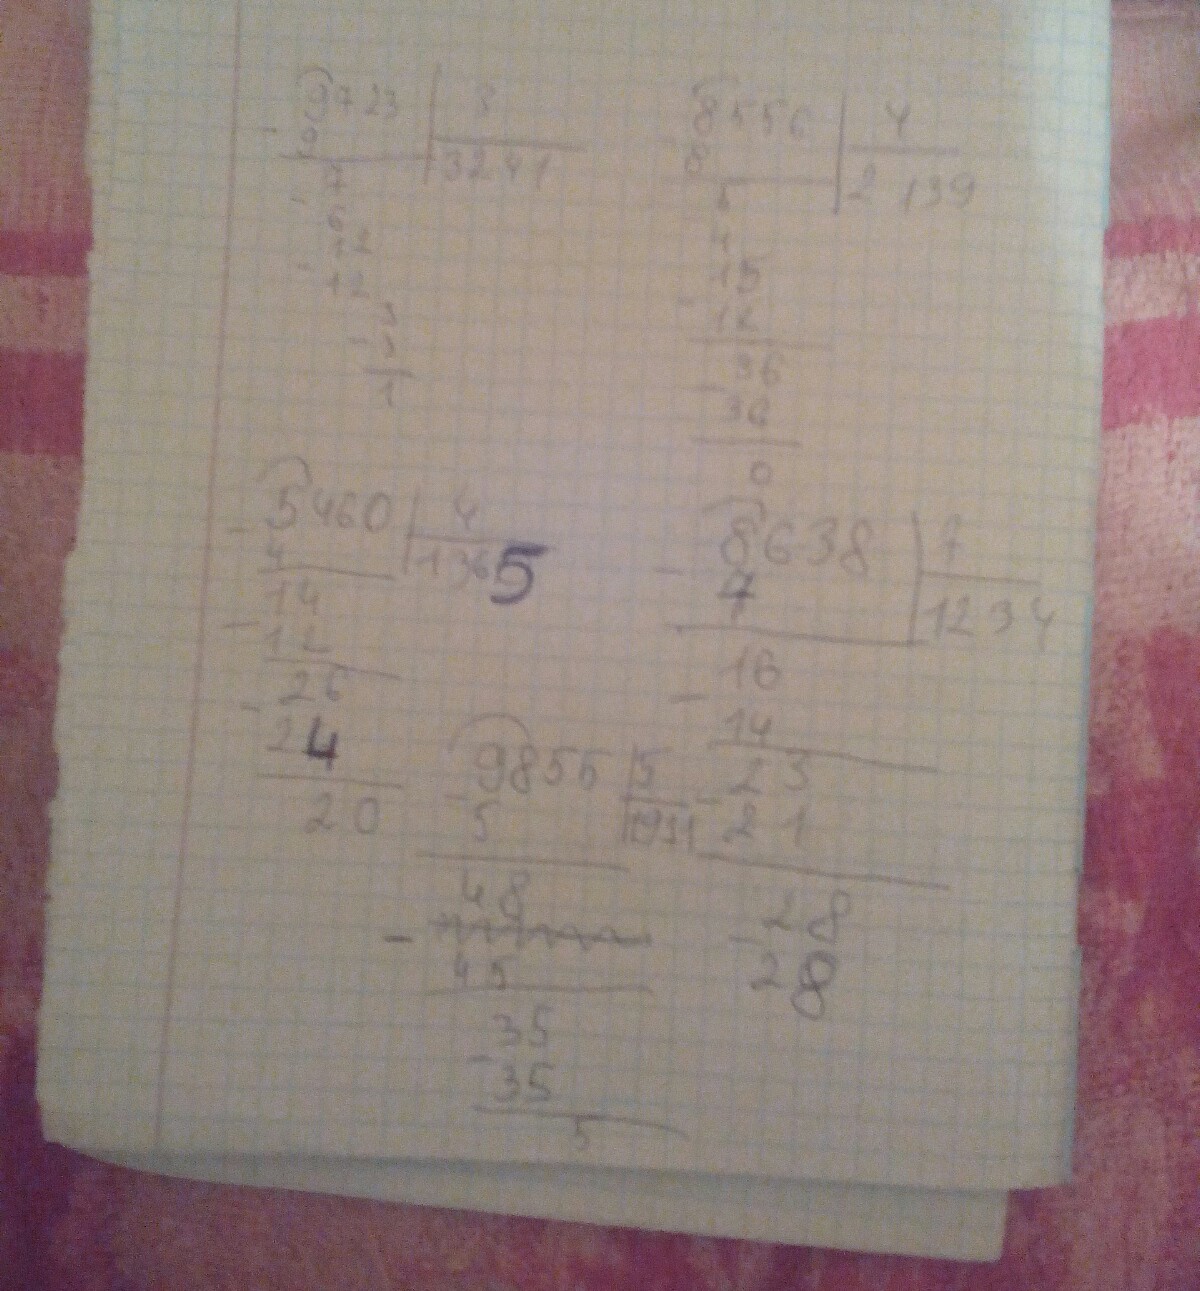 9723 3
9 3241
7
6
12
12
3
3
1
8556 4
8 2139
5
4
15
12
36
36
0
5460 4
4 1365
14
12
26
24
20
8638 7
7 1234
16
14
23
21
28
28
9855 5
5
48
45
35
35
5